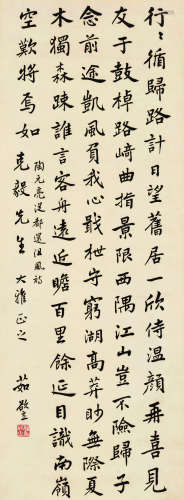 行〻循歸路計日望舊居一欣侍温顏再喜見
友于鼓棹路崎曲指景限西隅江山豈不險歸子
念前途凱風負我心戢枻守窮湖高莽眇無際夏
木獨森疎誰言客舟遠近瞻百里餘延目識南嶺
空歎將焉如
陶元亮從都還阻風詩
克毅先生大雅正之
茹欲立